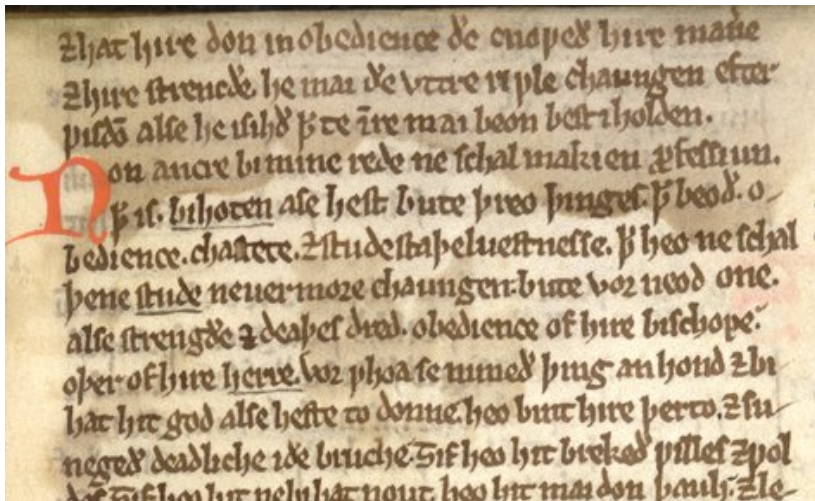 ⁊hat hire don inobedience. ðe cnoƿeð hire maner̄e
⁊hire strencðe. he mai ðe vttre riƿle chaungen efter
ƿisdō alse he isihð ꝥ te īre mai beon best iholden.
Non ancre bi mine rede ne schal makien ꝓfessiun.
ꝥ is. bihoten ase hest. bute þreo þinges. ꝥ beoð. o-
bedience. chastete. ⁊stude staþeluestnesse. ꝥ heo ne schal
þene stude neuermore chaungen. bute vor neod one.
alse strengðe ⁊ deaþes dred. obedience of hire bischope.
oþer of hire herre. vor ƿhoa se nimeð þing an hond ⁊bi-
hat hit god alse heste to donne. heo bint hire þerto. ⁊su-
negeð deadliche iðe bruche. ȝif heo hit brekeð ƿilles ⁊ƿol
des. ȝif heo hit ne bihat nout. heo hit mai don þauh. ⁊le-